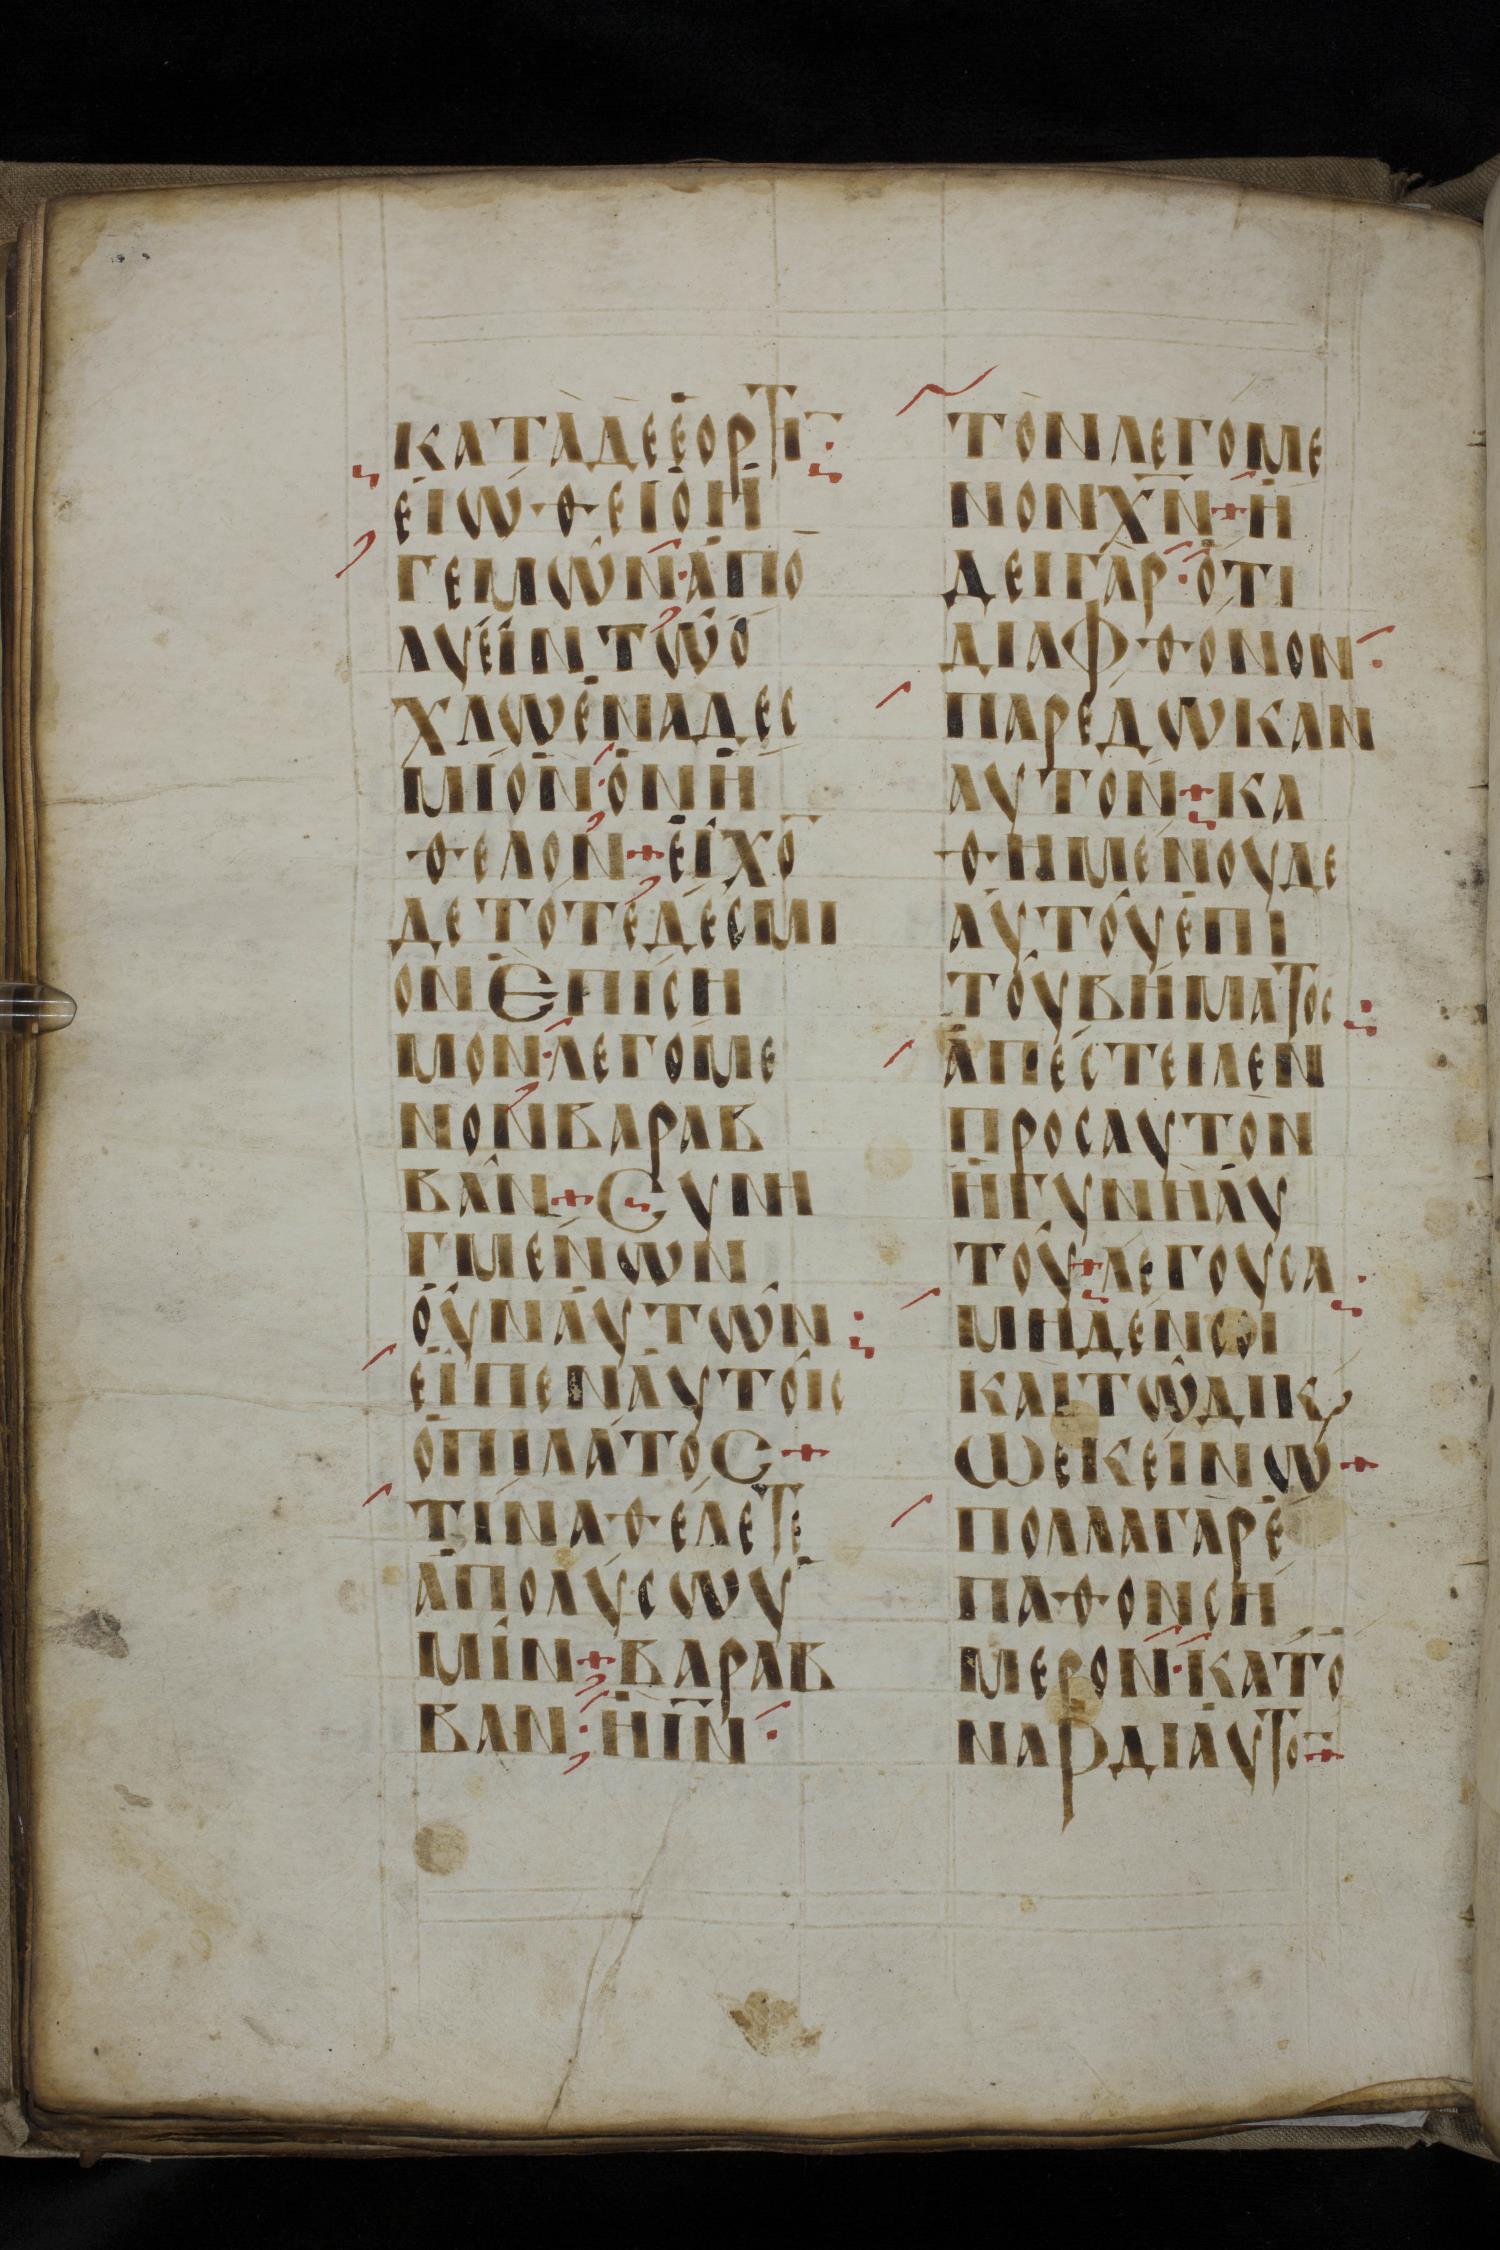 ΚΑΤΑΔΕΕΟΡΤΗ̅
ΕΙΩΘΕΙΟΗ
ΓΕΜΩΝ·ΑΠΟ
ΛΥΕΙΝΤΩΟ
ΧΛΩΕΝΑΔΕC
ΜΙΟΝ·ΟΝΗ
ΘΕΛΟΝ+ΕΙΧΟ̅
ΔΕΤΟΤΕΔΕCΜΙ
ΟΝΕΠΙCΗ
ΜΟΝ·ΛΕΓΟΜΕ
ΝΟΝΒΑΡΑΒ
ΒΑΝ+CΥΝΗ
ΓΜΕΝΩΝ
ΟΥΝΑΥΤΩΝ:
ΕΙΠΕΝΑΥΤΟΙC
ΟΠΙΛΑΤΟC+
ΤΙΝΑΘΕΛΕΤΕ
ΑΠΟΛΥCΩΥ
ΜΙΝ+ΒΑΡΑΒ
ΒΑΝ:ΗΙ̅Ν̅·
ΤΟΝΛΕΓΟΜΕ
ΝΟΝΧ̅Ν̅+Η
ΔΕΙΓΑΡ·ΟΤΙ
ΔΙΑΦΘΟΝΟΝ·
ΠΑΡΕΔΩΚΑΝ
ΑΥΤΟΝ+ΚΑ
ΘΗΜΕΝΟΥΔΕ
ΑΥΤΟΥΕΠΙ
ΤΟΥΒΗΜΑΤΟC:
ΑΠΕCΤΕΙΛΕΝ
ΠΡΟCΑΥΤΟΝ
ΗΓΥΝΗΑΥ
ΤΟΥ+ΛΕΓΟΥCΑ:
ΜΗΔΕΝCΟΙ
ΚΑΙΤΩΔΙΚϗ
ΩΕΚΕΙΝΩ+
ΠΟΛΛΑΓΑΡΕ
ΠΑΘΟΝCΗ
ΜΕΡΟΝ·ΚΑΤΟ
ΝΑΡΔΙΑΥΤΟ̅+